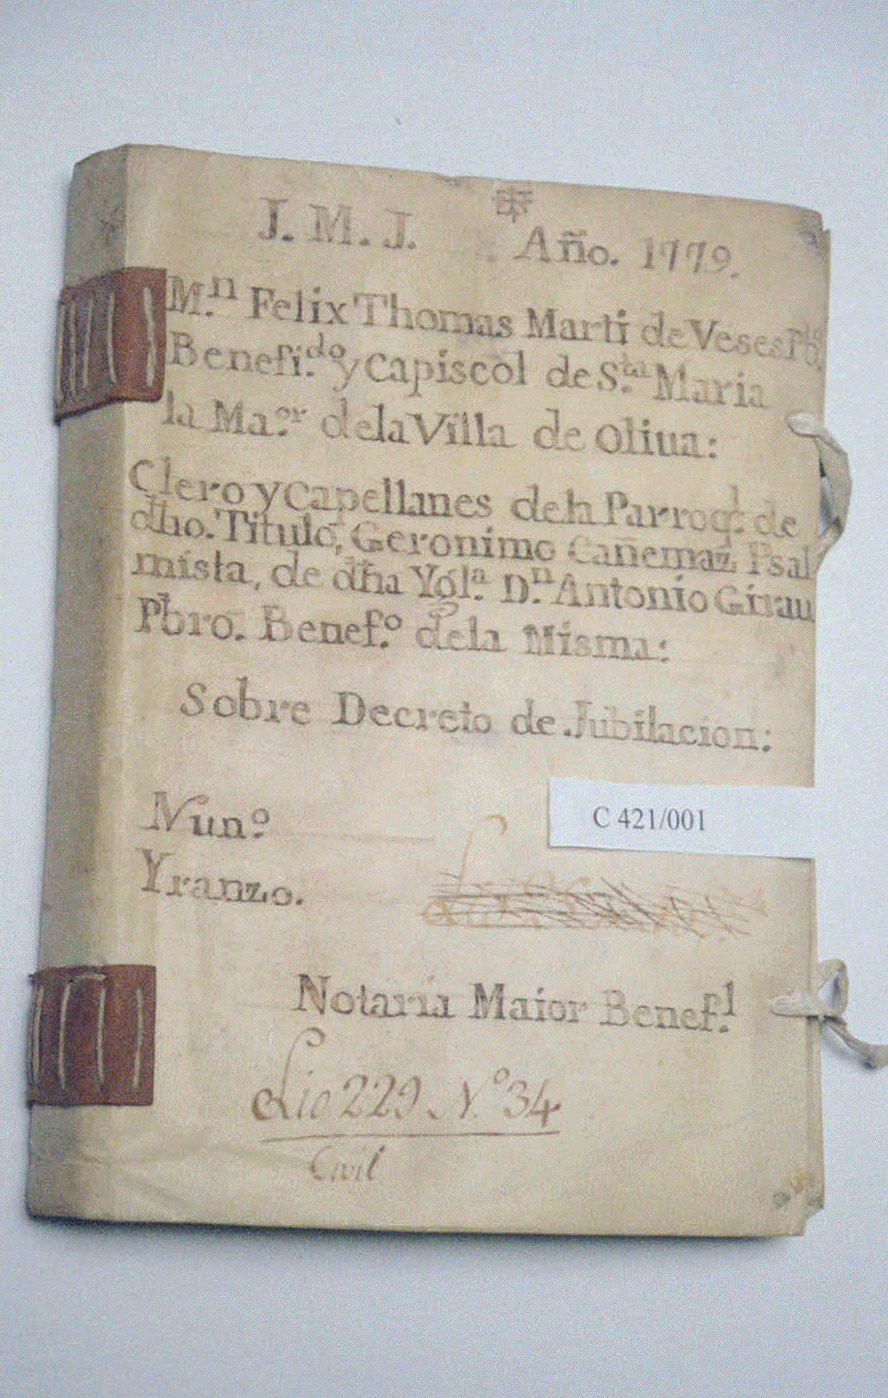 J. M. J. Año. 1779.
M.ⁿ Felix Thomas Marti de Veses Pbº.
Benefi.ᵈᵒ y Capiscol de S.ᵗᵃ Maria
la Ma.ᵒʳ dela Villa de Oliua:
Clero y Capellanes dela Parroq.ˡ de
dho. Titulo, Geronimo Cañemaz Psal
mista, de dha Ygl.ª D.ⁿ Antonio Girau
Pbro. Benef.º dela Misma:
Sobre Decreto de Jubilacion:
Nun.º
C 421/001
Yranzo.
Notaria Maior Benef.ˡ
Lio 229 N.º 34
Civil